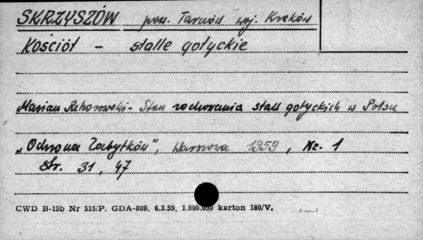 SKRZYSZÓW pow. Tarnów woj. Kraków
Kościół - stalle gotyckie
Marian Rehorowski - Stan zachowania stall gotyckich w Polsce
"Ochrona Zabytków", Warszawa 1959, Nr. 1
str. 31, 47
CWD B-15b Nr 515/P. GDA-809. 6.3.59. 1.000.000 karton 180/V.